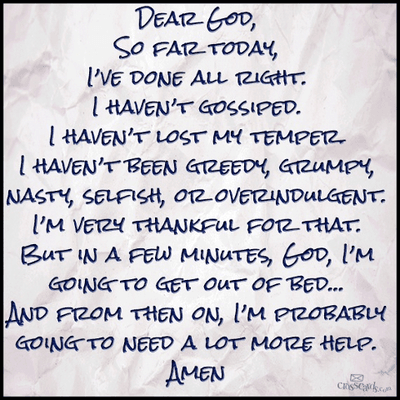 Dear God,
So far today,
I've done all right.
I haven't gossiped.
I haven't lost my temper.
I haven't been greedy, grumpy,
nasty, selfish, or overindulgent.
I'm very thankful for that.
But in a few minutes, God, I'm
going to get out of bed...
And from then on, I'm probably
going to need a lot more help.
Amen